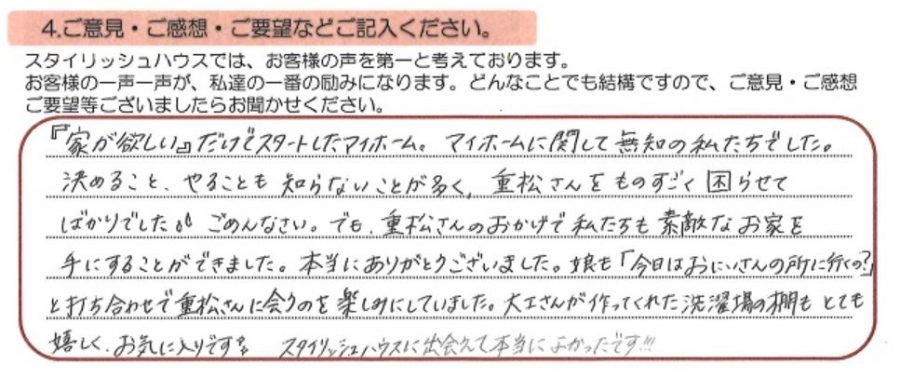 4.ご意見・ご感想・ご要望などご記入ください。
スタイリッシュハウスでは、お客様の声を第一と考えております。
お客様の一声一声が、私達の一番の励みになります。どんなことでも結構ですので、ご意見・ご感想
ご要望等ございましたらお聞かせください。
『家が欲しい』だけでスタートしたマイホーム。マイホームに関して無知の私たちでした。
決めること、やることも知らないことが多く、重松さんをものすごく困らせて
ばかりでした。ごめんなさい。でも、重松さんのおかげで私たちも素敵なお家を
手にすることができました。本当にありがとうございました。娘も「今日はおにいさんの所に行くの?」
と打ち合わせで重松さんに会うのを楽しみにしていました。大工さんが作ってくれた洗濯場の棚もとても
嬉しく、お気に入りです。 スタイリッシュハウスに出会えて本当によかったです!!!